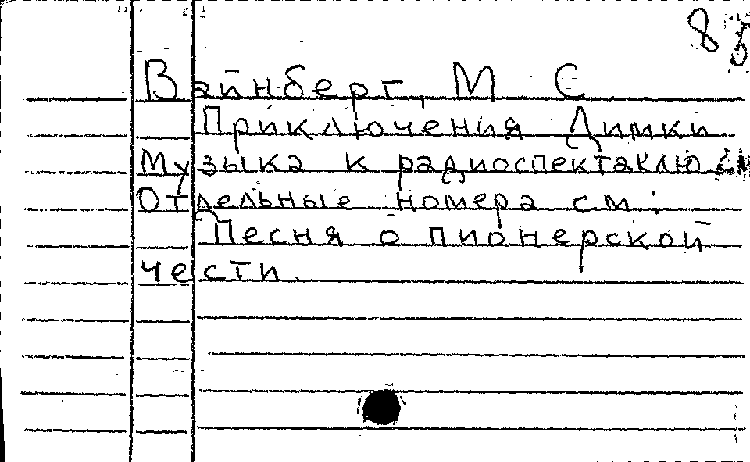 Вайнберг, М С
Приключения Димки
Музыка к радиоспектаклю
Отдельные номера см:
Песня о пионерской
чести.